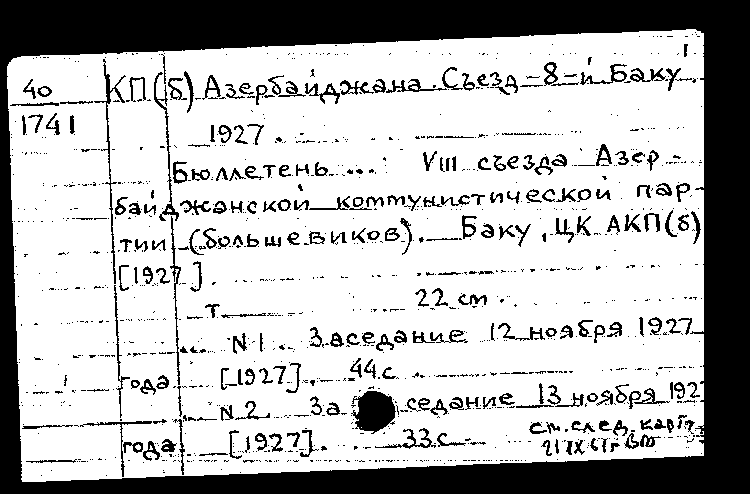 1
40 КП(б) Азербайджана. Съезд-8-й Баку.
1741 1927.
Бюллетень ... VIII съезда Азер-
байджанской коммунистической пар-
тии (большевиков). Баку, ЦК АКП(б)
[1927].
т. 22 см.
... N 1. Заседание 12 ноября 1927
года [1927]. 44 с.
... N 2. За седание 13 ноября 192
года. [1927]. 33 с.
см. след. карт.